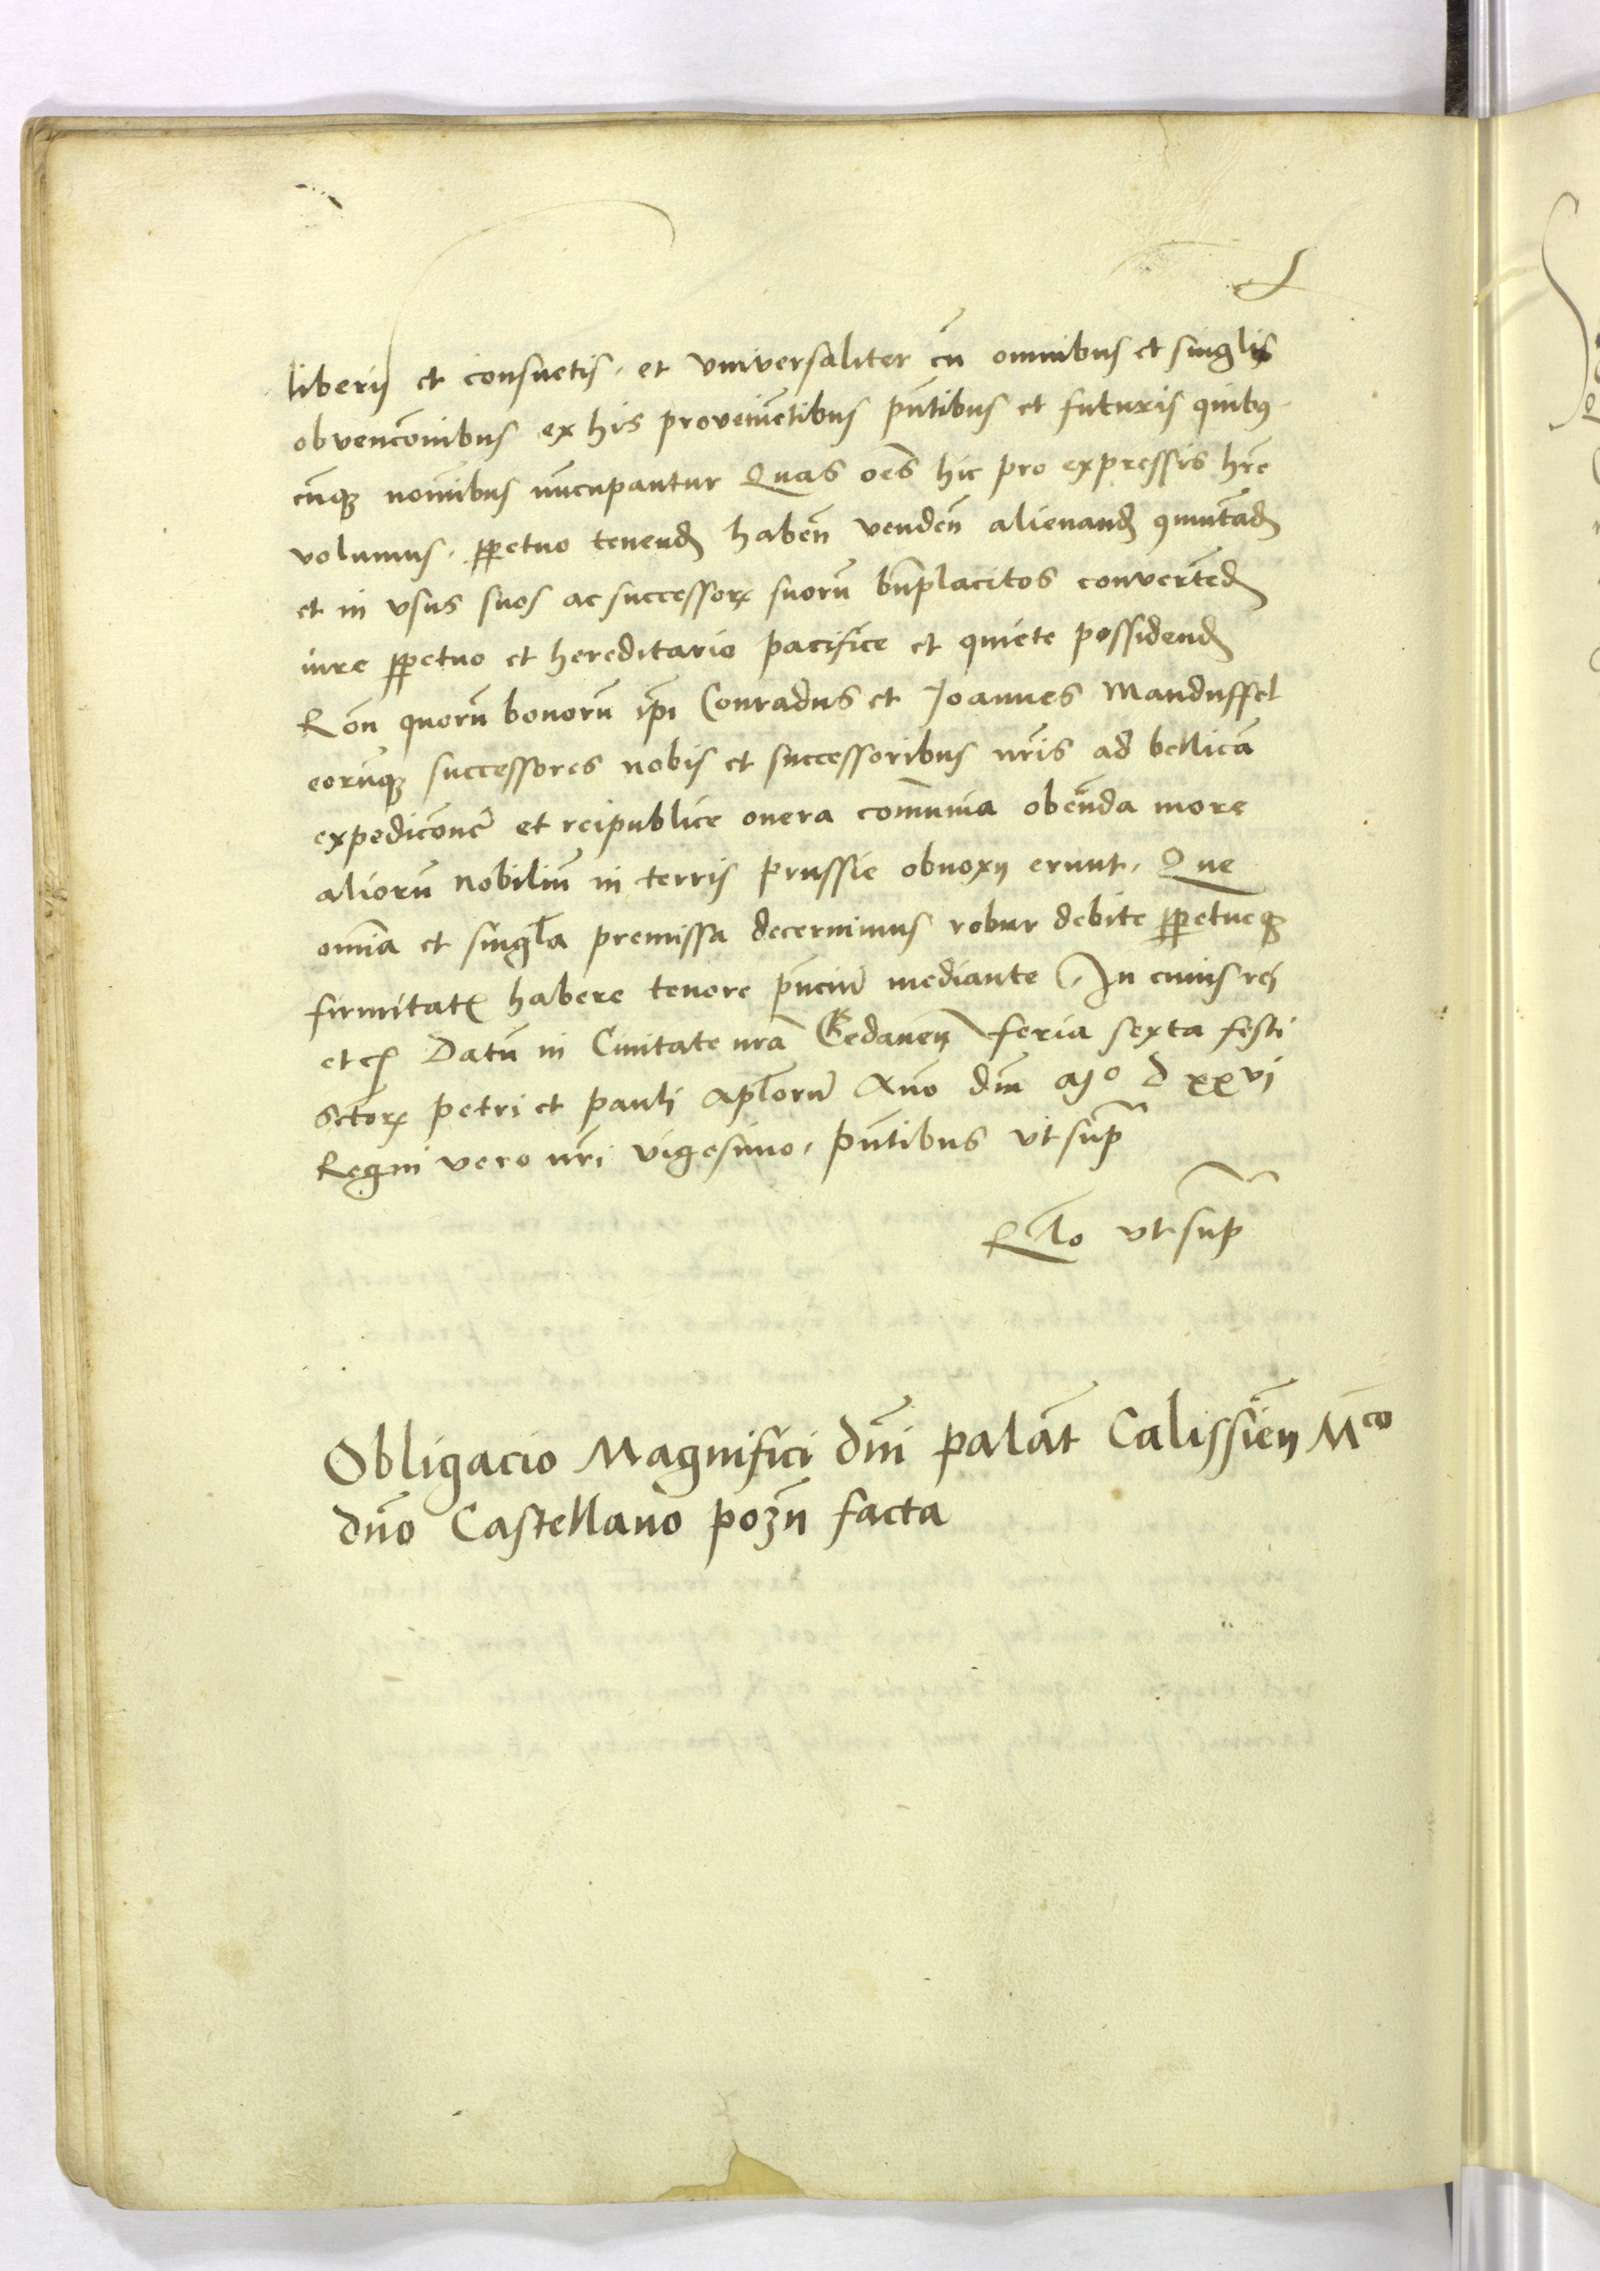 liberis et consuetis. et vniversaliter cū omnibus et singlis
obvencōnibus ex his provenietibus pn̄tibus et futuris quibꝰ
cūqꝫ nomibus nūcupantur Quas oēs hic pro expressis hr̄e
volumus. ꝑpetuo tenend habeñ vendeñ alienand ꝯmutād
et in vsus suos ac successorꝝ suorū bn̄placitos convertēd
iure ꝑpetuo et hereditario pacifice et quiete possidend
Rōn quorū bonorū ip̄i Conradus et Joannes Manduffel
eorūqꝫ successores nobis et successoribus nr̄is ad bellicā
expedicōnē et reipublice onera com̄unia obeūda more
aliorū nobiliū in terris prussie obnoxij erunt. Que
om̄ia et singl̄a premissa decernimus robur debite ꝑpetueqꝫ
firmitatꝭ habere tenore pn̄ciū mediante. In cuius rei
etcꝭ Datū in Ciuitate nr̄a Gedaneñ feria sexta festi
Sctorꝝ petri et pauli apl̄orū Anno dn̄i Mo d xxvi
Regni vero nr̄i vigesimo. pn̄tibus vt sup̄
Rlō vt sup̄
Obligacio Magnifici dn̄i palāt Calissieñ Mco
dn̄o Castellano pozn̄ facta